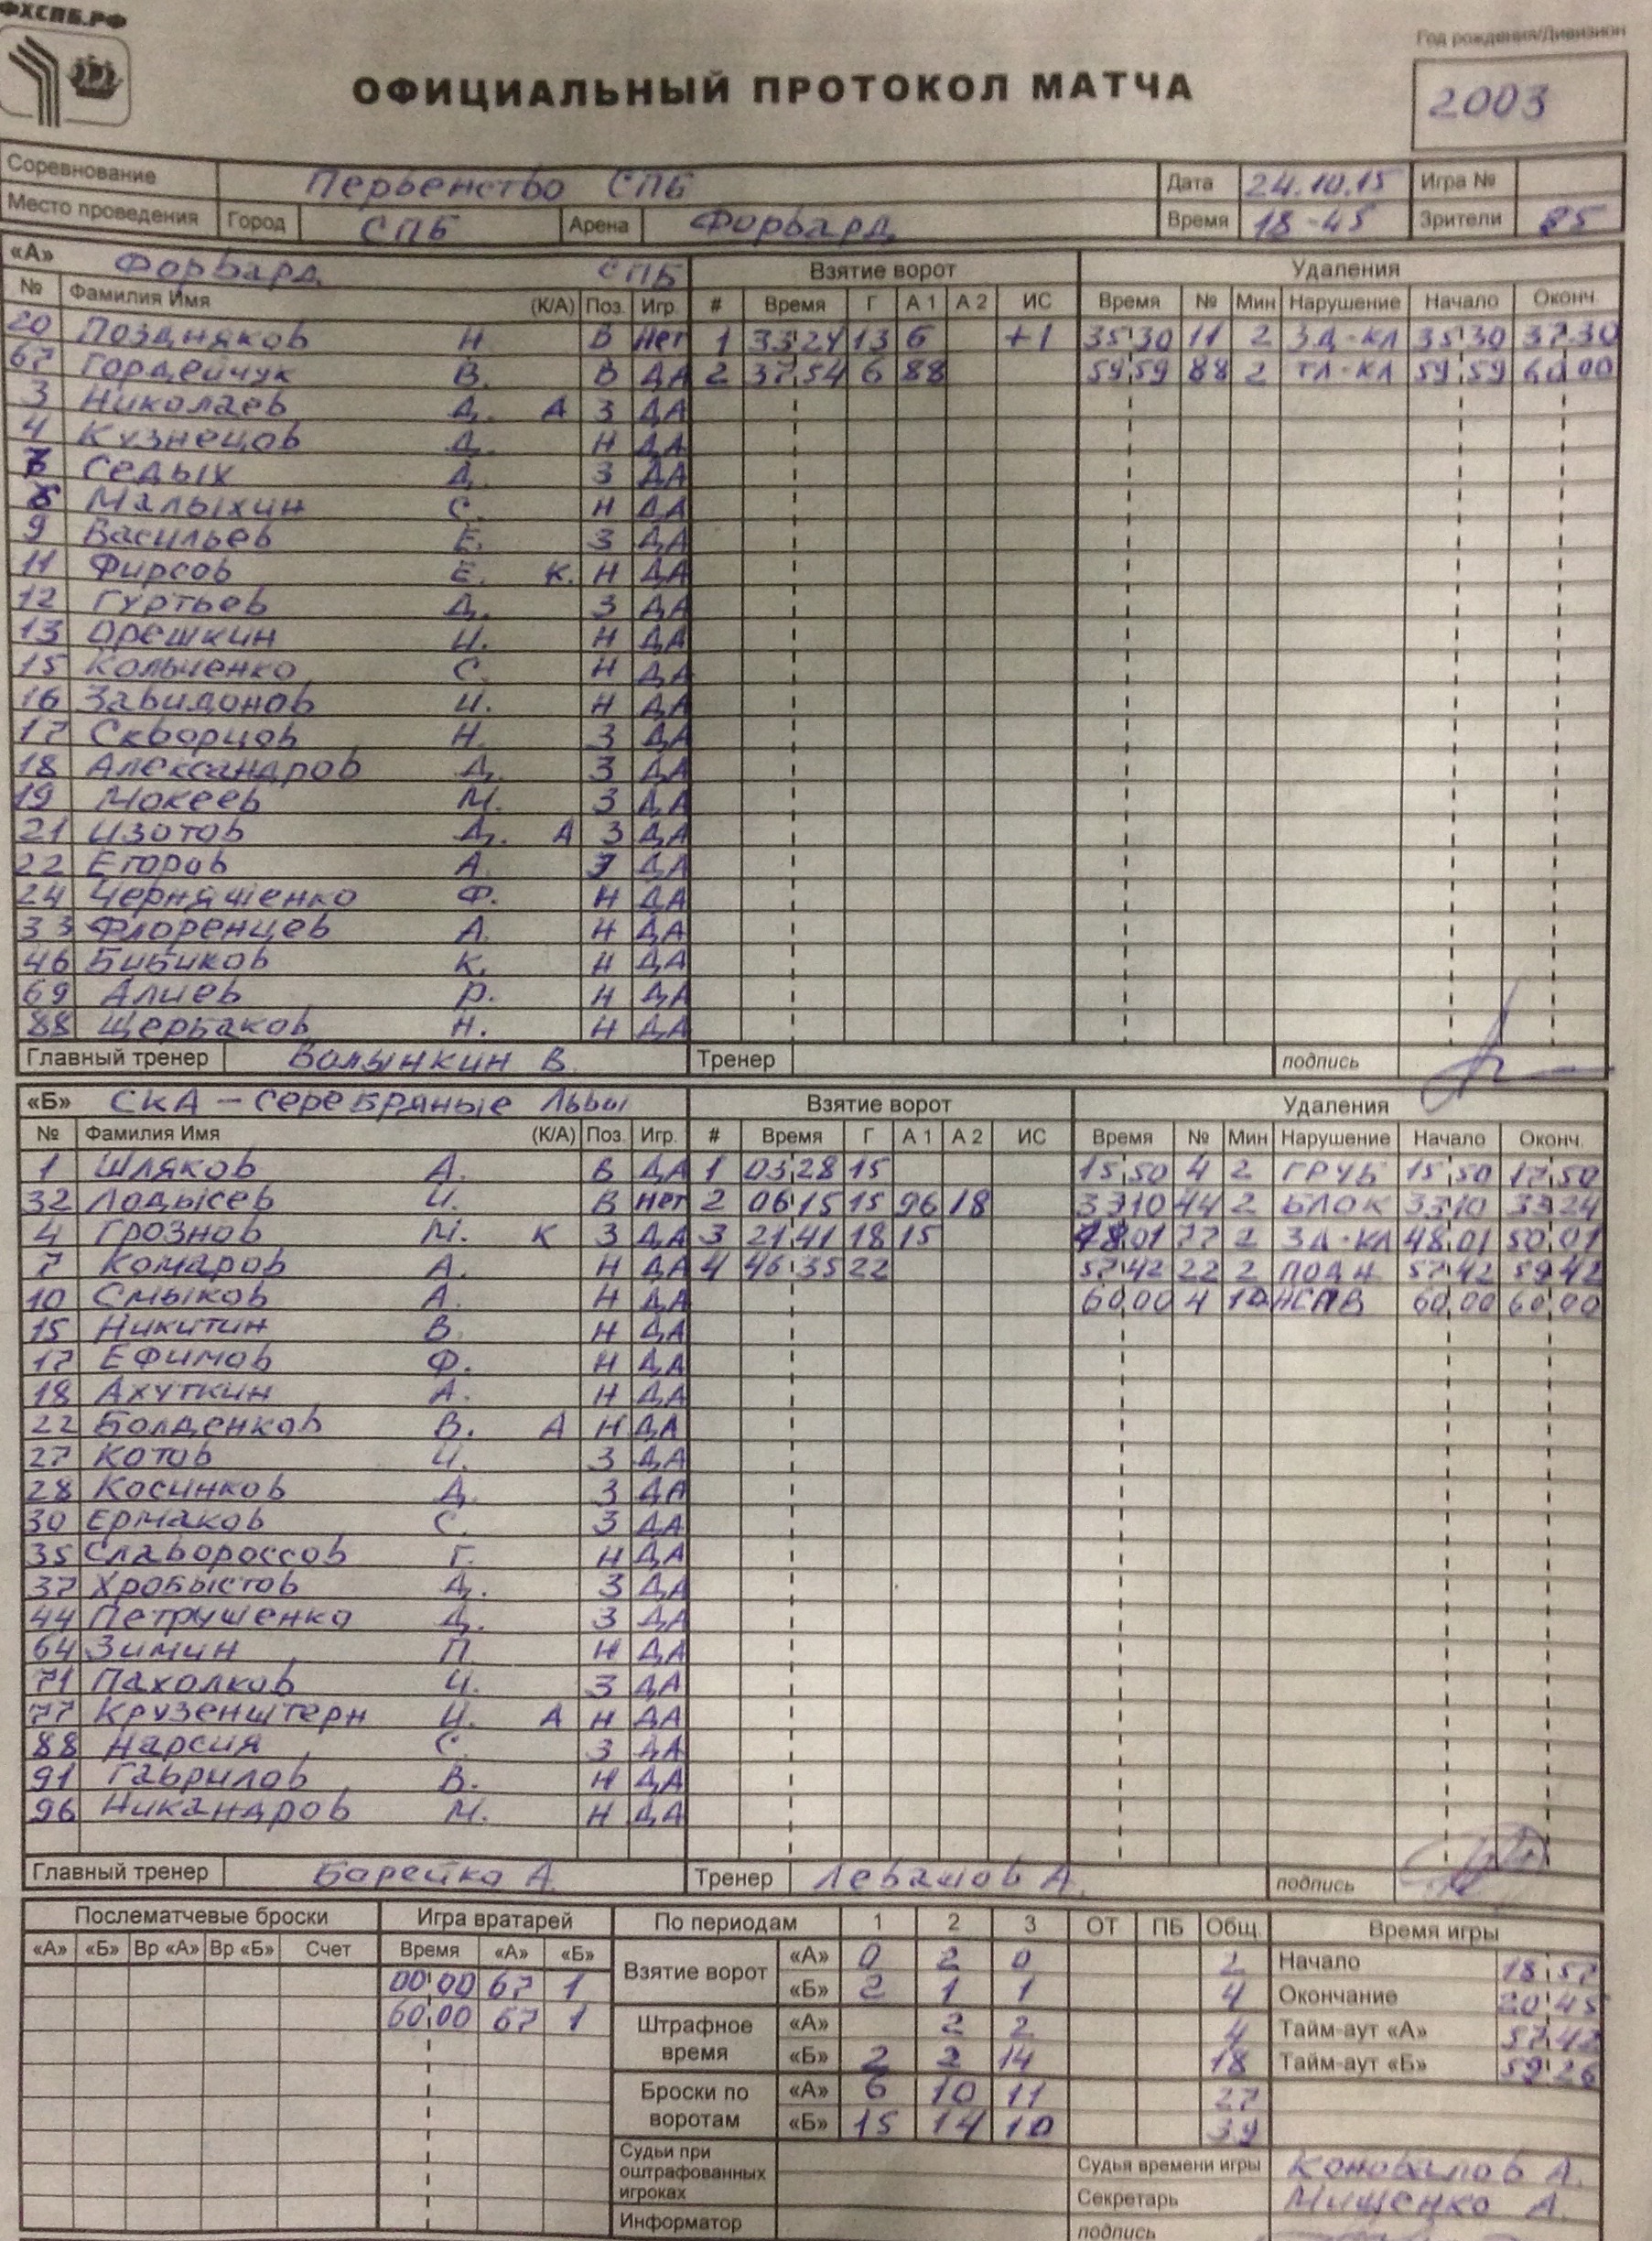 ФХСПБ.РФ
Год рождения/Дивизион
ОФИЦИАЛЬНЫЙ ПРОТОКОЛ МАТЧА
2003
Соревнование Первенство СПБ Дата 24.10.15 Игра №
Место проведения Город СПБ Арена Форвард Время 18-45 Зрители 85
«А» Форвард СПБ Взятие ворот Удаления
№ Фамилия Имя (К/А) Поз. Игр. # Время Г А 1 А 2 ИС Время № Мин Нарушение Начало Оконч.
20 Поздняков Н. В Нет 1 33 24 13 6 +1 35 30 11 2 ЗД-КЛ 35 30 37 30
67 Гордейчук В. В ДА 2 37 54 6 88 59 59 88 2 ТЛ-КЛ 59 59 60 00
3 Николаев Д. А З ДА
4 Кузнецов Д. Н ДА
Седых Д. З ДА
Малыхин С. Н ДА
9 Васильев Е. З ДА
11 Фирсов Е. К. Н ДА
12 Гуртьев Д. З ДА
13 Орешкин И. Н ДА
15 Кольченко С. Н ДА
16 Завидонов И. Н ДА
17 Скворцов Н. З ДА
18 Александров Д. З ДА
19 Мокеев М. З ДА
21 Изотов Д. А З ДА
22 Егоров А. З ДА
24 Черняшенко Ф. Н ДА
33 Флоренцев А. Н ДА
46 Бибиков К. Н ДА
69 Алиев Р. Н ДА
88 Щербаков Н. Н ДА
Главный тренер Волынкин В. Тренер подпись
«Б» СКА - Серебряные Львы Взятие ворот Удаления
№ Фамилия Имя (К/А) Поз. Игр. # Время Г А 1 А 2 ИС Время № Мин Нарушение Начало Оконч.
1 Шляков А. В ДА 1 03 28 15 15 50 4 2 ГРУБ 15 50 17 50
32 Лодысев И. В Нет 2 06 15 15 96 18 33 10 44 2 БЛОК 33 10 33 24
4 Грознов М. К З ДА 3 21 41 18 15 48 01 77 2 ЗД-КЛ 48 01 50 01
7 Комаров А. Н ДА 4 46 35 22 57 42 22 2 ПОДН 57 42 59 42
10 Смыков А. Н ДА 60 00 4 10 НСПВ 60 00 60 00
15 Никитин В. Н ДА
17 Ефимов Ф. Н ДА
18 Ахуткин А. Н ДА
22 Болденков В. А Н ДА
27 Котов И. З ДА
28 Косинков Д. З ДА
30 Ермаков С. З ДА
35 Славороссов Г. Н ДА
37 Хробыстов Д. З ДА
44 Петрушенко Д. З ДА
64 Зимин П. Н ДА
71 Пахолков И. З ДА
77 Крузенштерн И. А Н ДА
88 Нарсия С. З ДА
91 Гаврилов В. Н ДА
96 Никандров М. Н ДА
Главный тренер Борейко А. Тренер Левашов А. подпись
Послематчевые броски Игра вратарей По периодам 1 2 3 ОТ ПБ Общ. Время игры
«А» «Б» Вр «А» Вр «Б» Счет Время «А» «Б»
Взятие ворот «А» 0 2 0 2 Начало 18 57
00 00 67 1 «Б» 2 1 1 4 Окончание 20 45
60 00 67 1 Штрафное время «А» 2 2 4 Тайм-аут «А» 57 42
«Б» 2 2 14 18 Тайм-аут «Б» 59 26
Броски по воротам «А» 6 10 11 27
«Б» 15 14 10 39
Судьи при оштрафованных игроках Судья времени игры Коновалов А.
Секретарь Мищенко А.
Информатор подпись